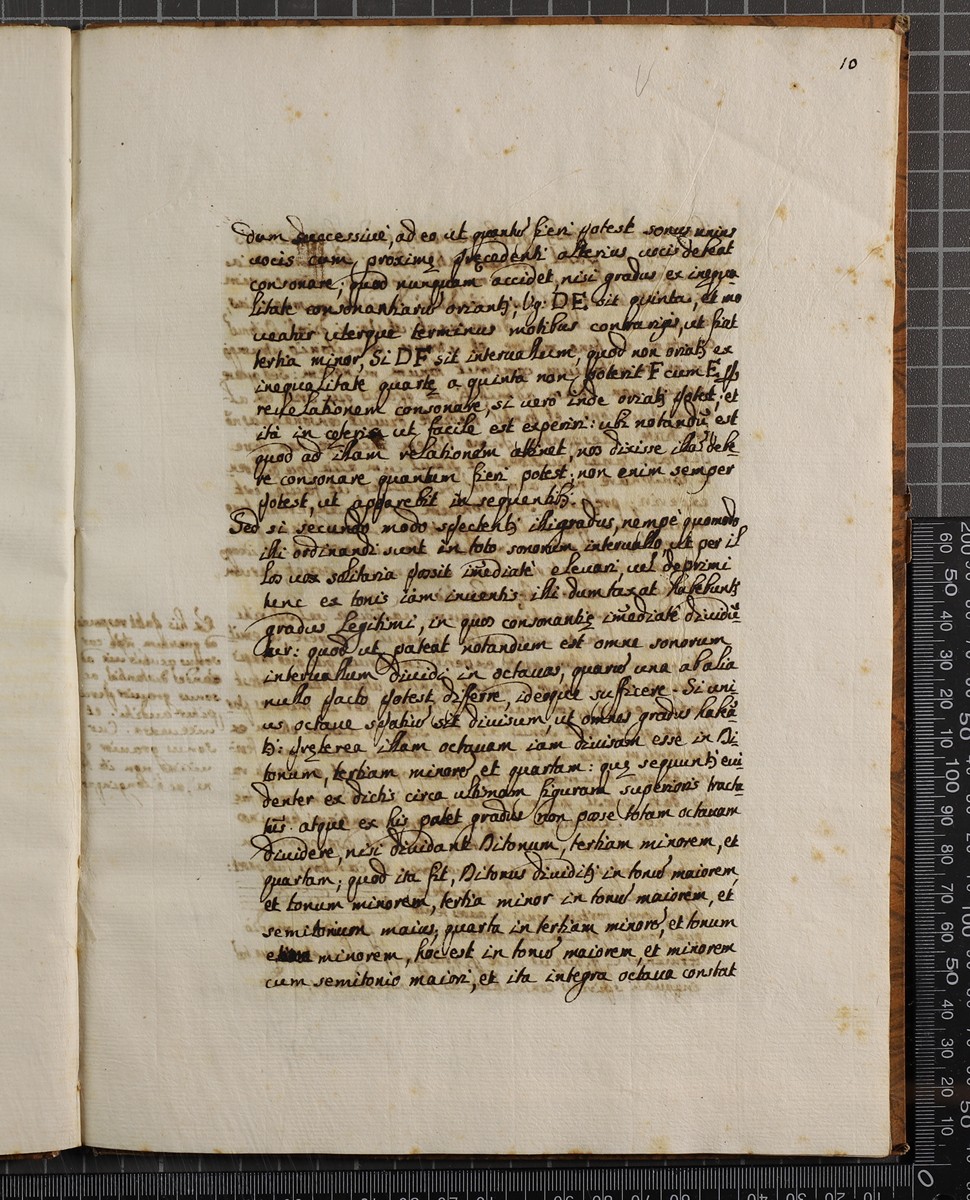 10
dum successiuè, ad eo ut quantū fieri potest sonus unius
uocis cum proximę pręcedenti alterius uocis debeat
consonare; quod nunquam accidet, nisi gradus ex inequa
litate consonantiarū oriantʒ; Vg: DE. sit quinta, et mo
ueatur uterque terminus motibus contrarijs, ut fiat
tertia minor, Si DF sit interuallum, quod non oriatʒ ex
inequalitate quartę a quinta non poterit F cum E
relationem consonare, si uero inde oriatʒ potest; et
ità in cęteris ut facile est experiri: ubi notandū est
quod ad illam relationem attinet, nos dixisse illā debe
re consonare quantum fieri potest; non enim semper
potest, ut apparebit in sequentibʒ.
Sed si secundo modo spectentʒ illi gradus, nempè quomodo
illi ordinandi sunt in toto sonorum interuallo ut per il
los uox solitaria possit im̄ediatè eleuari, uel deprimi
tunc ex tonis iàm inuentis illi dumtaxat habebuntʒ
gradus legitimi, in quos consonantię im̄ediatè diuidū
tur: quod ut pateat notandum est omne sonorum
interuallum diuidi in octauas, quarū una ab alia
nullo pacto potest differre, ideoque sufficere. Si uni
us octauę spatiū sit diuisum, ut omnes gradus habeā
tʒ: pręterea illam octauam iàm diuisam esse in Di
tonum, tertiam minorē, et quartam: quę sequuntʒ eui
denter ex dictis circa ultimam figuram superioris tracta
tūs. atque ex his patet gradus non posse totam octauam
diuidere, nisi diuidant Ditonum, tertiam minorem, et
quartam; quod ita fit, Ditonus diuiditʒ in tonū maiorem,
et tonum minorem, tertia minor in tonū maiorem, et
semitonium maius, quarta in tertiam minorē, et tonum
minorem, hoc est in tonū maiorem, et minorem
cum semitonio maiori, et ita integra octaua constat